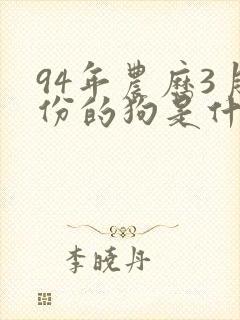 94年農歷3月
份的狗是什
李曉丹